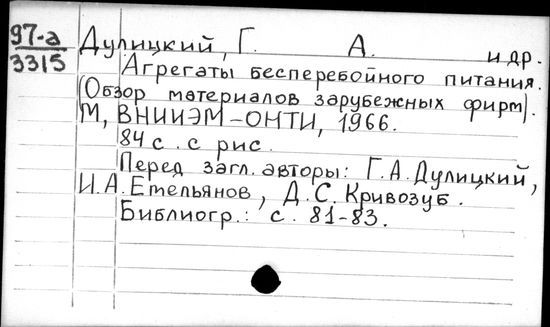 97-а
3315
Дулицкий, Г. А. и др.
Агрегаты бесперебойного питания.
(Обзор материалов зарубежных фирм).
М, ВНИИЭМ-ОНТИ, 1966.
84 с. с рис.
Перед загл. авторы: Г.А. Дулицкий,
И.А. Емельянов, Д.С. Кривозуб.
Библиогр.: с. 81-83.